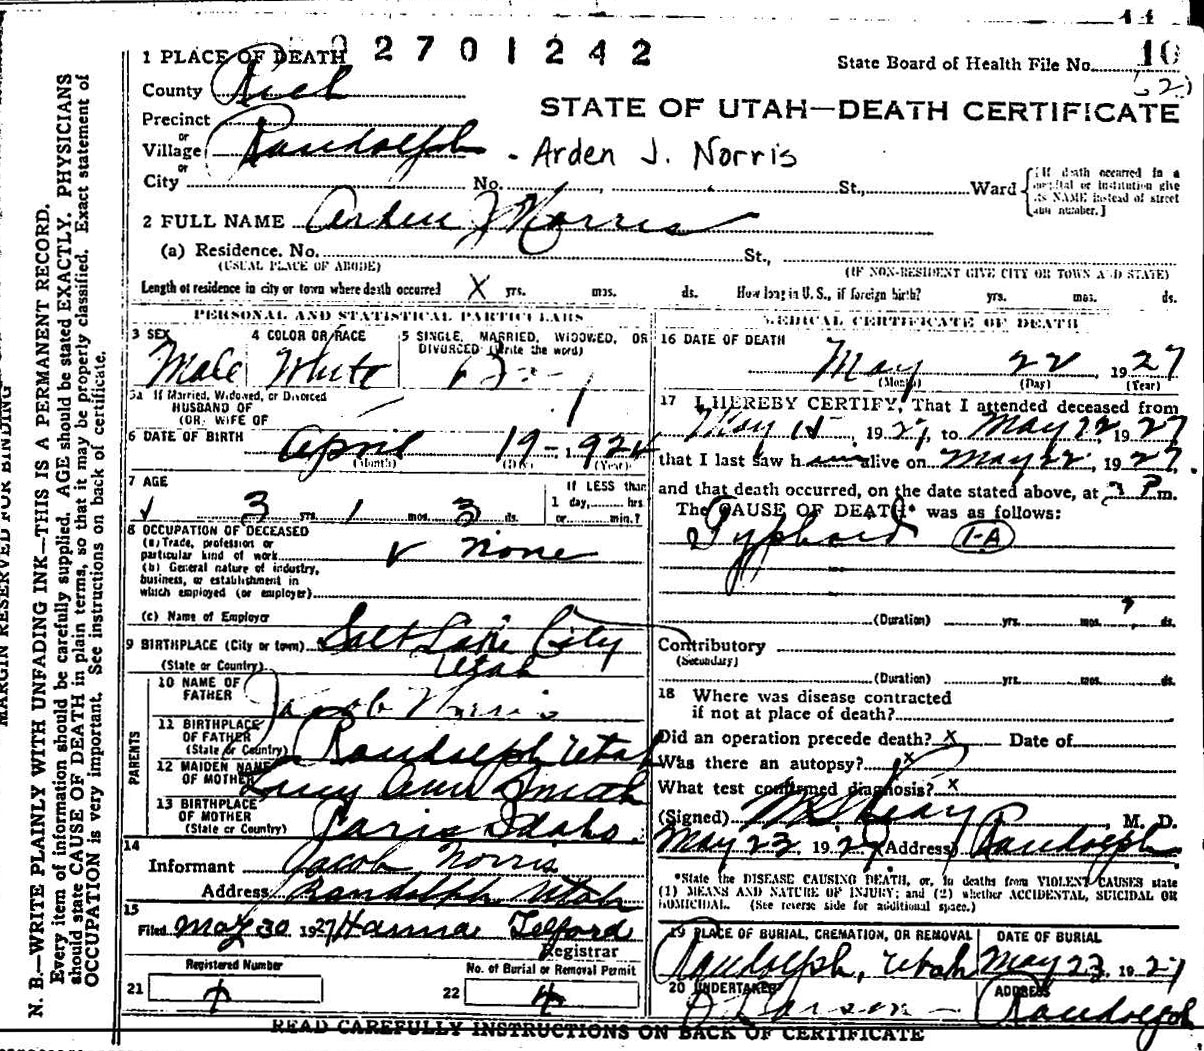 1 PLACE OF DEATH 02701242
State Board of Health File No. 10
County Rich
STATE OF UTAH—DEATH CERTIFICATE
Precinct
or
Village Randolph - Arden J. Norris
or
City No. St., Ward { [If death occurred in a hospital or institution give its NAME instead of street and number.]
2 FULL NAME Arden J Norris
(a) Residence. No. St.,
(USUAL PLACE OF ABODE) (IF NON-RESIDENT GIVE CITY OR TOWN AND STATE)
Length of residence in city or town where death occurred X yrs. mos. ds. How long in U. S., if foreign birth? yrs. mos. ds.
PERSONAL AND STATISTICAL PARTICULARS
3 SEX Male
4 COLOR OR RACE White
5 SINGLE, MARRIED, WIDOWED, OR DIVORCED (Write the word)
5a If Married, Widowed, or Divorced
HUSBAND OF
(OR) WIFE OF
6 DATE OF BIRTH April 19- 1924
(Month) (Day) (Year)
7 AGE 3 yrs. 1 mos. 3 ds.
IF LESS than
1 day, hrs
or min.?
8 OCCUPATION OF DECEASED
(a) Trade, profession or
particular kind of work none
(b) General nature of industry,
business, or establishment in
which employed (or employer)
(c) Name of Employer
9 BIRTHPLACE (City or town) Salt Lake City
(State or Country) Utah
PARENTS
10 NAME OF
FATHER Jacob Norris
11 BIRTHPLACE
OF FATHER
(State or Country) Randolph Utah
12 MAIDEN NAME
OF MOTHER Lucy Ann Smith
13 BIRTHPLACE
OF MOTHER
(State or Country) Paris Idaho.
14
Informant Jacob Norris
Address Randolph Utah
15
Filed May 30 1927 Hannah Telford
Registrar
Registered Number
21
No. of Burial or Removal Permit
22 4
MEDICAL CERTIFICATE OF DEATH
16 DATE OF DEATH
May 22 1927
(Month) (Day) (Year)
17 I HEREBY CERTIFY, That I attended deceased from
May 15, 1927, to May 22, 1927
that I last saw him alive on May 22, 1927.
and that death occurred, on the date stated above, at 3 P m.
The CAUSE OF DEATH* was as follows:
Typhoid 1-A
(Duration) yrs. mos. ? ds.
Contributory
(Secondary)
(Duration) yrs. mos. ds.
18 Where was disease contracted
if not at place of death?
Did an operation precede death? X Date of
Was there an autopsy? x
What test confirmed diagnosis? x
(Signed) M. D.
May 23, 1927 (Address) Randolph
*State the DISEASE CAUSING DEATH, or, in deaths from VIOLENT CAUSES state
(1) MEANS AND NATURE OF INJURY; and (2) whether ACCIDENTAL, SUICIDAL OR
HOMICIDAL. (See reverse side for additional space.)
19 PLACE OF BURIAL, CREMATION, OR REMOVAL
Randolph, Utah
DATE OF BURIAL
May 23, 1927
20 UNDERTAKER
Larson
ADDRESS
Randolph
READ CAREFULLY INSTRUCTIONS ON BACK OF CERTIFICATE
MARGIN RESERVED FOR BINDING
N. B.—WRITE PLAINLY WITH UNFADING INK—THIS IS A PERMANENT RECORD.
Every item of information should be carefully supplied. AGE should be stated EXACTLY. PHYSICIANS
should state CAUSE OF DEATH in plain terms, so that it may be properly classified. Exact statement of
OCCUPATION is very important. See instructions on back of certificate.